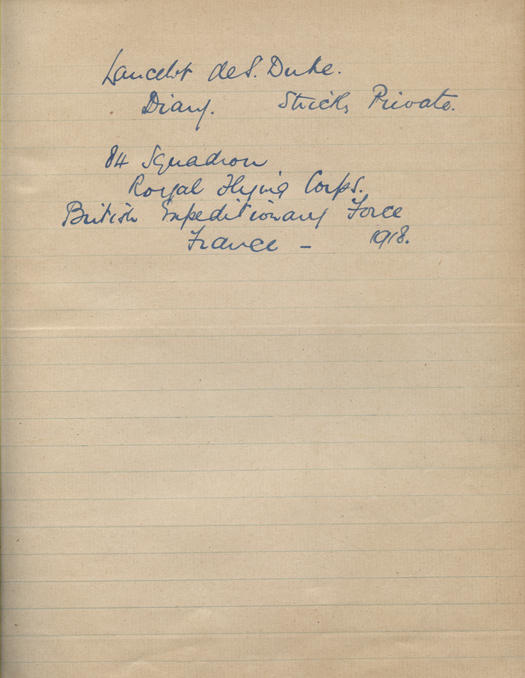 Lancelot de S. Duke.
Diary. Strictly Private.
84 Squadron
Royal Flying Corps.
British Expeditionary Force
France - 1918.